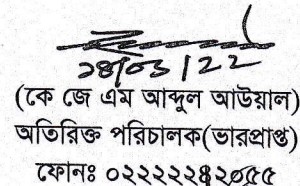 ১৪/০৩/২২
(কে জে এম আব্দুল আউয়াল)
অতিরিক্ত পরিচালক(ভারপ্রাপ্ত)
ফোনঃ ০২২২২২৪২০৫৫